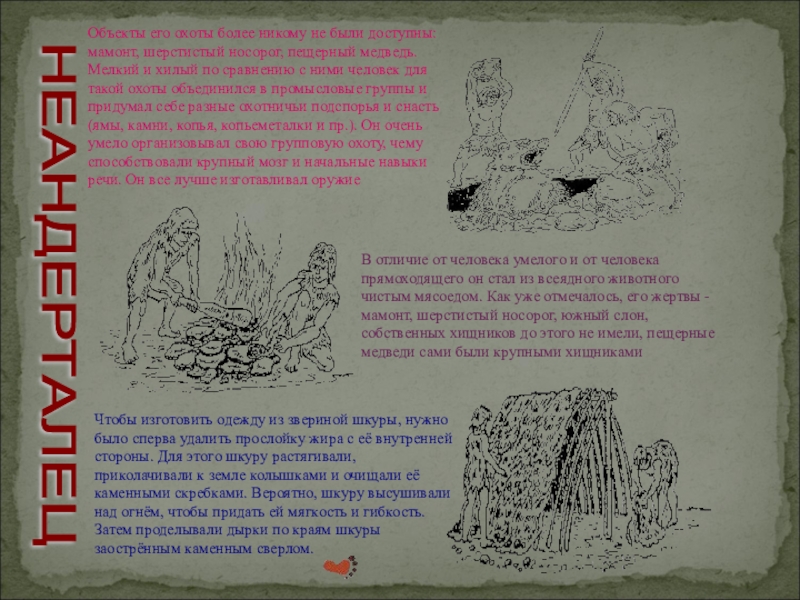 НЕАНДЕРТАЛЕЦ
Объекты его охоты более никому не были доступны:
мамонт, шерстистый носорог, пещерный медведь.
Мелкий и хилый по сравнению с ними человек для
такой охоты объединился в промысловые группы и
придумал себе разные охотничьи подспорья и снасть
(ямы, камни, копья, копьеметалки и пр.). Он очень
умело организовывал свою групповую охоту, чему
способствовали крупный мозг и начальные навыки
речи. Он все лучше изготавливал оружие
В отличие от человека умелого и от человека
прямоходящего он стал из всеядного животного
чистым мясоедом. Как уже отмечалось, его жертвы -
мамонт, шерстистый носорог, южный слон,
собственных хищников до этого не имели, пещерные
медведи сами были крупными хищниками
Чтобы изготовить одежду из звериной шкуры, нужно
было сперва удалить прослойку жира с её внутренней
стороны. Для этого шкуру растягивали,
приколачивали к земле колышками и очищали её
каменными скребками. Вероятно, шкуру высушивали
над огнём, чтобы придать ей мягкость и гибкость.
Затем проделывали дырки по краям шкуры
заострённым каменным сверлом.